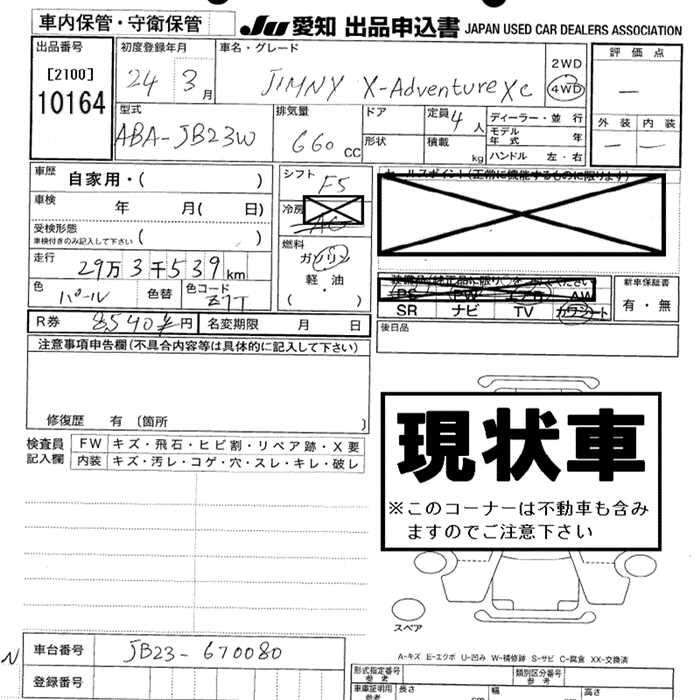 車内保管・守衛保管
JU 愛知 出品申込書 JAPAN USED CAR DEALERS ASSOCIATION
出品番号
[2100]
10164
初度登録年月
24 3月
車名・グレード
JIMNY X-Adventure XC
2WD
4WD
評価点
—
外装 内装
— —
型式
ABA-JB23W
排気量
660 CC
ドア
形状
定員 4人
積載 kg
ディーラー・並行
モデル年式 年
ハンドル 左・右
車歴 自家用・( )
車検 年 月( 日)
受検形態
車検付きのみ記入して下さい ( )
走行 29万3千539km
色 パール 色替 色コード Z7T
シフト F5
冷房 AC
燃料
ガソリン
軽・油
( ・ )
セールスポイント(正常に機能するものに限ります)
装備品(純正品に限り○をつけてください)
PS PW エアB AW
SR ナビ TV カワシート
新車保証書
有・無
R券 8540円 名変期限 月 日
後日品
注意事項申告欄(不具合内容等は具体的に記入して下さい)
修復歴 有〔箇所 〕
検査員記入欄
FW キズ・飛石・ヒビ割・リペア跡・X要
内装 キズ・汚レ・コゲ・穴・スレ・キレ・破レ
現状車
※このコーナーは不動車も含み
ますのでご注意下さい
スペア
A-キズ E-エクボ U-凹み W-補修跡 S-サビ C-腐食 XX-交換済
N
車台番号 JB23-670080
登録番号
形式指定番号 参考
類別区分番号 参考
車庫証明用 参考
長さ 幅 高さ